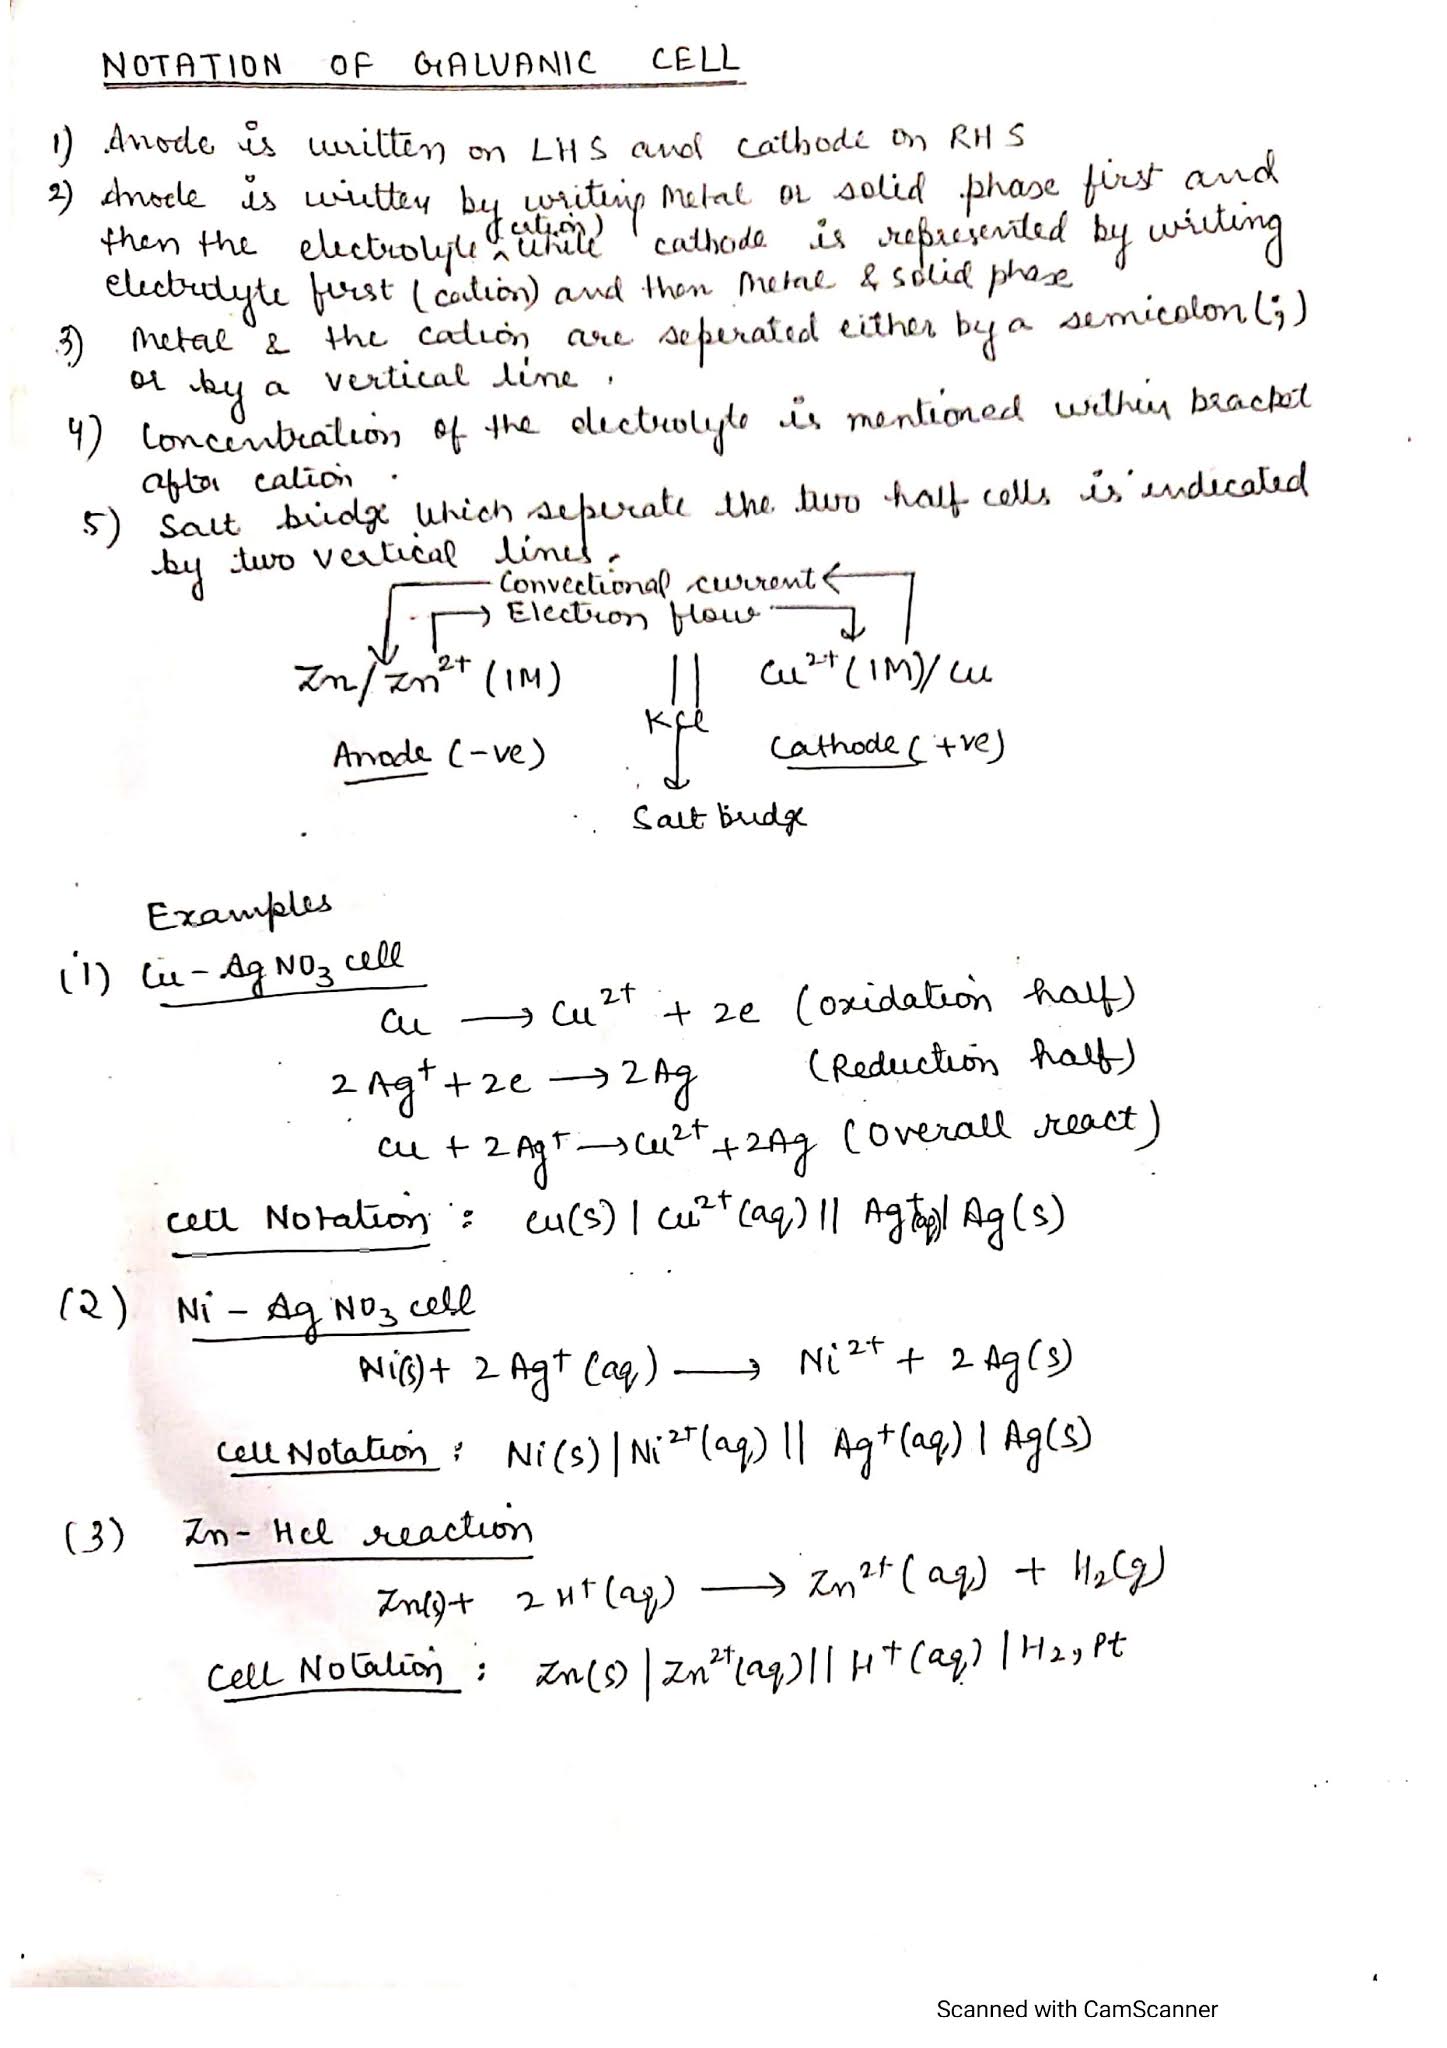 NOTATION OF GALVANIC CELL
1) Anode is written on LHS and cathode on RHS
2) Anode is written by writing Metal or solid phase first and
then the electrolyte ^ (cation) while cathode is represented by writing
electrolyte first (cation) and then Metal & solid phase
3) Metal & the cation are seperated either by a semicolon (;)
or by a vertical line.
4) Concentration of the electrolyte is mentioned within bracket
after cation.
5) Salt bridge which seperate the two half cells is indicated
by two vertical lines.
Convectional current
Electron flow
Zn/Zn²⁺ (1M) || Cu²⁺ (1M)/Cu
KCl
Anode (-ve) Cathode (+ve)
Salt bridge
Examples
(1) Cu - AgNO₃ cell
Cu → Cu²⁺ + 2e (oxidation half)
2Ag⁺ + 2e → 2Ag (Reduction half)
Cu + 2Ag⁺ → Cu²⁺ + 2Ag (Overall react)
Cell Notation : Cu(s) | Cu²⁺(aq) || Ag⁺(aq) | Ag(s)
(2) Ni - AgNO₃ cell
Ni(s) + 2Ag⁺ (aq) → Ni²⁺ + 2Ag(s)
Cell Notation : Ni(s) | Ni²⁺(aq) || Ag⁺(aq) | Ag(s)
(3) Zn - HCl reaction
Zn(s) + 2H⁺(aq) → Zn²⁺(aq) + H₂(g)
Cell Notation : Zn(s) | Zn²⁺(aq) || H⁺(aq) | H₂, Pt
Scanned with CamScanner